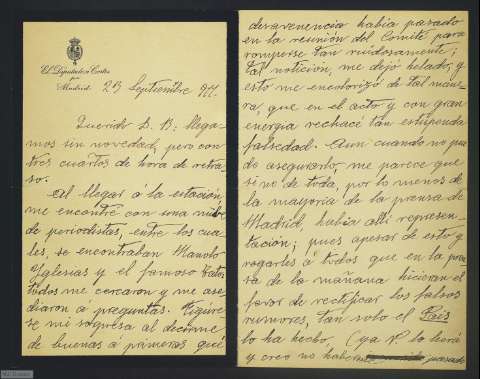 El Diputado a Cortes
por
Madrid
29 Septiembre 911.
Querido D. B: llega-
mos sin novedad, pero con
tres cuartos de hora de retra-
so.
Al llegar á la estación
me encontré con una nube
de periodistas, entre los cua-
les, se encontraban Manolo
Yglesias y el famoso
todos me cercaron y me ase-
diaron á preguntas. Figúre-
se mi sorpresa al decirme
de buenas á primeras qué
desavenencia había pasado
en la reunión del Comité para
romperse tan ruidosamente;
tal notición, me dejó helado, y
esto me encolerizó de tal mane-
ra, que en el acto y con gran
energia rechacé tan estupenda
falsedad. Aun cuando no pue-
do asegurarlo, me parece que
si no de toda, por lo menos de
la mayoría de la prensa de
Madrid, había allí represen-
tación; pues apesar de esto y
rogarles á todos que en la pren-
sa de la mañana hicieran el
favor de rectificar los falsos
rumores, tan solo el País
lo ha hecho. (ya R. lo hará
y creo no haber pasado